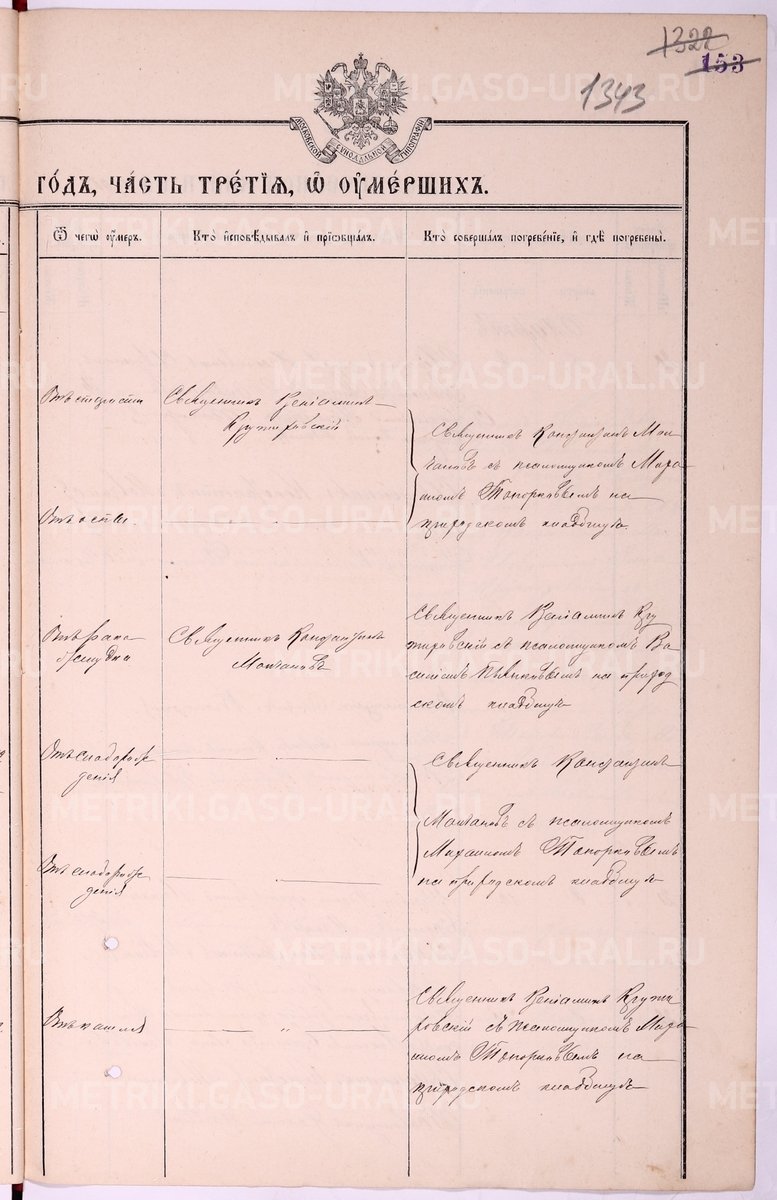 1322
153
1343
МОСКОВСКОЙ СѴНОДАЛЬНОЙ ТИПОГРАФІИ
го́дъ, ча́сть тре́тїѧ, ѡ҆ ᲂу҆ме́ршихъ.
Ѿ чегѡ̀ ᲂу҆́меръ.
Кто̀ и҆сповѣ́дывалъ и҆ прїѡбща́лъ.
Кто̀ соверша́лъ погребе́нїе, и҆ гдѣ̀ погребены̀.
Отъ старости
Священникъ Веніаминъ
Священникъ Константинъ Мол-
чановъ съ псаломщикомъ Миха-
иломъ Топорковымъ на
приходскомъ кладбищѣ.
Отъ оспы.
Отъ рака
желудка
Священникъ Константинъ
Молчановъ
Священникъ Веніаминъ
съ псаломщикомъ Ва-
силіемъ на приход-
скомъ кладбищѣ
Отъ слаборож-
денія
Священникъ Константинъ
Молчановъ съ псаломщикомъ
Михаиломъ Топорковымъ
на приходскомъ кладбищѣ
Отъ слаборож-
денія
Отъ кашля
Священникъ Веніаминъ
съ псаломщикомъ Миха-
иломъ Топорковымъ на
приходскомъ кладбищѣ
METRIKI.GASO-URAL.RU